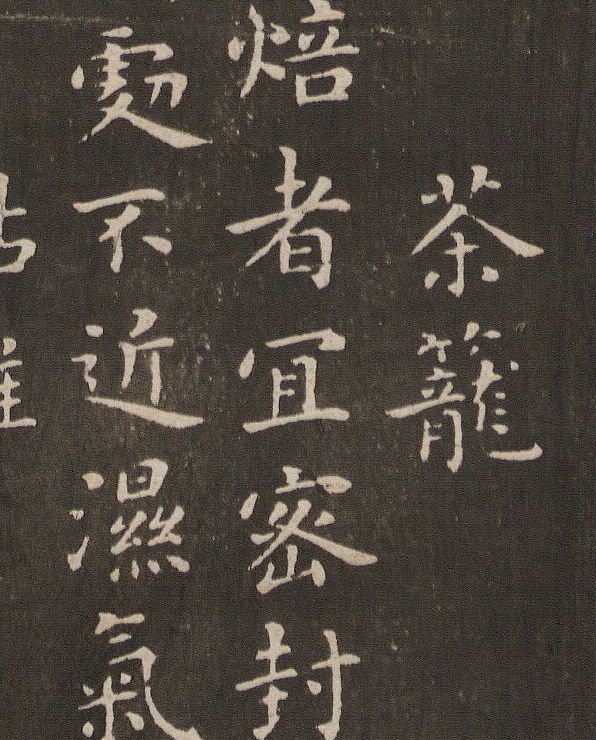 茶籠
焙者宜密封
處不近濕氣